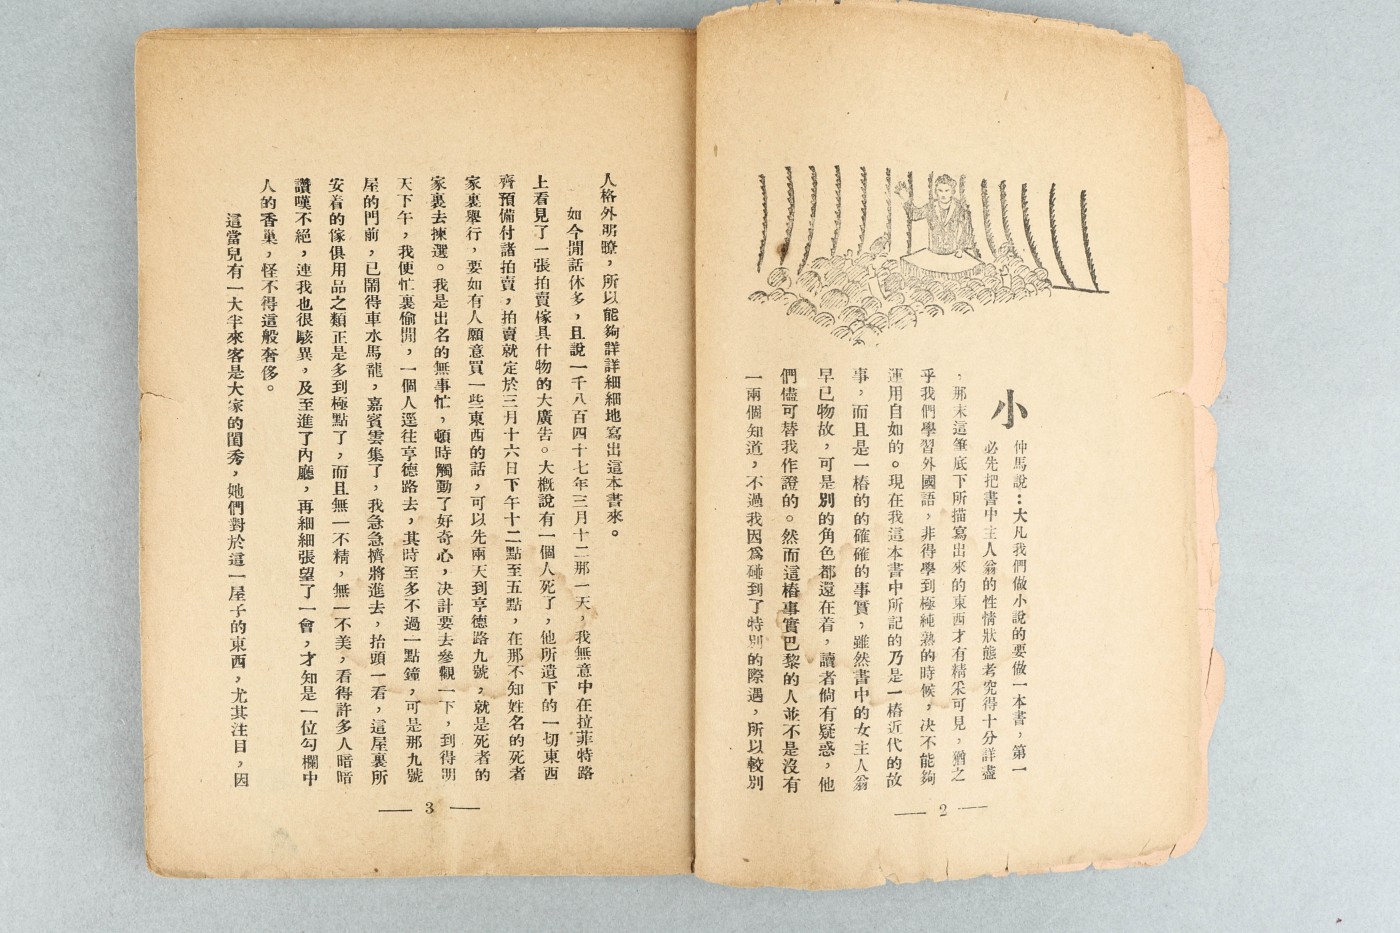 小
仲馬說：大凡我們做小說的要做一本書，第一
必先把書中主人翁的性情狀態考究得十分詳盡
，那末這筆底下所描寫出來的東西才有精采可見，猶之
乎我們學習外國語，非得學到極純熟的時候，決不能夠
運用自如的。現在我這本書中所記的乃是一樁近代的故
事，而且是一樁的的確確的事實，雖然書中的女主人翁
早已物故，可是別的角色都還在着，讀者倘有疑惑，他
們儘可替我作證的。然而這樁事實巴黎的人並不是沒有
一兩個知道，不過我因爲碰到了特別的際遇，所以較別
— 2 —
人格外明瞭，所以能夠詳詳細細地寫出這本書來。
如今閒話休多，且說一千八百四十七年三月十二那一天，我無意中在拉菲特路
上看見了一張拍賣傢具什物的大廣告。大概說有一個人死了，他所遺下的一切東西
齊預備付諸拍賣，拍賣就定於三月十六日下午十二點至五點，在那不知姓名的死者
家裏舉行，要如有人願意買一些東西的話，可以先兩天到亨德路九號，就是死者的
家裏去揀選。我是出名的無事忙，頓時觸動了好奇心，決計要去參觀一下，到得明
天下午，我便忙裏偷閒，一個人逕往亨德路去，其時至多不過一點鐘，可是那九號
屋的門前，已鬧得車水馬龍，嘉賓雲集了，我急急擠將進去，抬頭一看，這屋裏所
安着的傢俱用品之類正是多到極點了，而且無一不精，無一不美，看得許多人暗暗
讚嘆不絕，連我也很駭異，及至進了內廳，再細細張望了一會，才知是一位勾欄中
人的香巢，怪不得這般奢侈。
這當兒有一大半來客是大家的閨秀，她們對於這一屋子的東西，尤其注目，因
— 3 —